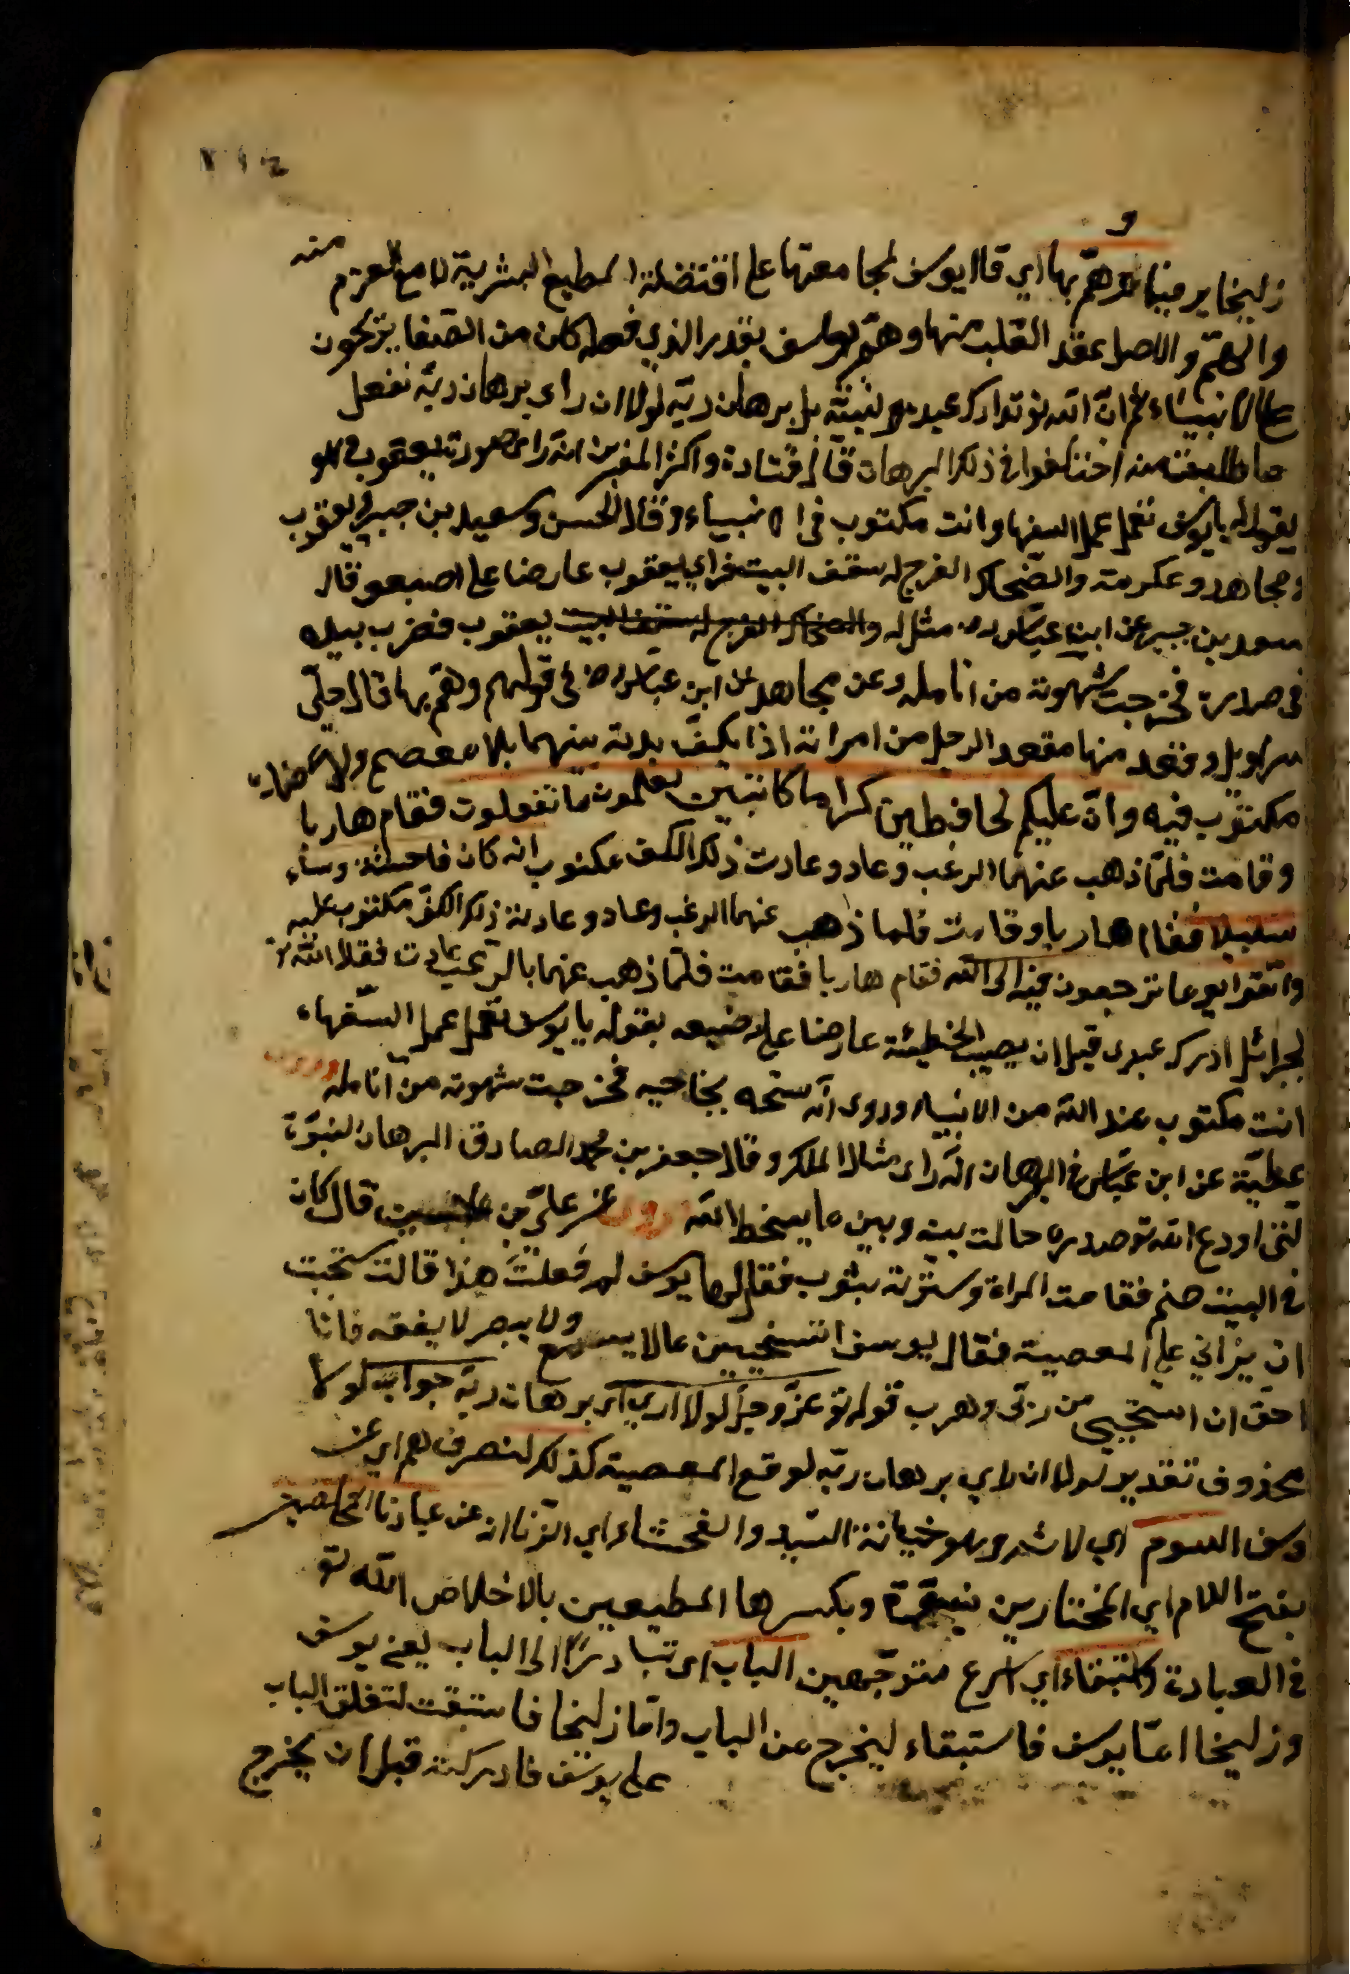 ٢١٤
و
زليخا بر ميناء وهمّ بها اي قال يوسف لمجامعتها على اقتضاء الطبع البشرية لا مع العزم منه
والهمّ والاصل عقد القلب منها وهمّ يوسف بقدر الذي فعله كان من الصغاير يجون
على الانبياء ثم انّ الله تو تدارك عبده ونبيّه بل برهان ربّه لولا ان راى برهان ربّه نفعل
ما طلبت منه اختلفوا في ذلك البرهان قال قتادة واكثر المفسرين انه راى صورة يعقوب وهو
يقول له يا يوسف تعمل عمل السفها وانت مكتوب في الانبياء وقال الحسن وسعيد بن جبير
ومجاهد وعكرمة والضحاك انفرج له سقف البيت فراى يعقوب عارضا على اصبعه وقال
سعيد بن جبير عن ابن عباس مثل له يعقوب فضرب بيده
في صدره فخرجت شهوته من انامله وعن مجاهد عن ابن عباس رض في قولهم وهمّ بها قال حلّ
سراويل وقعد منها مقعد الرجل من امراته اذا بكفّ بدت بينهما بلا معصم ولا عضد
مكتوب فيه وانّ عليكم لحافظين كراما كاتبين يعلمون ما تفعلون فقام هاربا
وقامت فلمّا ذهب عنهما الرغب وعاد وعادت ذلك الكف مكتوب انه كان فاحشة وساء
سبيلا فقام هاربا وقامت فلما ذهب عنهما الرغب وعاد وعادت ذلك الكف مكتوب عليه
واتقوا يوما ترجعون فيه الى الله فقام هاربا فقامت فلمّا ذهب عنهما بالرّغب عادت فقال الله تو
لجبرائل ادرك عبدى قبل ان يصيب الخطيئة عارضا على اصبعه بقوله يا يوسف تعمل عمل السّفهاء
انت مكتوب عند الله من الانبياء وروى انه مسحه بجناحيه فخرجت شهوته من انامله وروى
عطيّة عن ابن عباس في البرهان انه راى مثال الملك وقال جعفر بن محمد الصادق البرهان النبوّة
الّتى اودع الله تو صدره حالت بينه وبين ما يسخط الله وروى عن على بن قال كان
في البيت صنم فقامت المراة وسترته بثوب فقال لها يوسف لم فعلت هذا قالت ستحيت
ان يراني على المعصية فقال يوسف اتستحيين عمالا يسمع ولا يبصر لا يفقه فانا
احق ان استحيي من ربّى وهرب قوله تو عزّ وجلّ لولا ان راى برهان ربّه جواب لولا
محذوف تقدير لولا ان راي برهان ربّه لوقع المعصية كذلك لنصرف هم اي عن
وسف السوم اي لا شر وهو خيانة السّيد والفحشاء اي الزّنا انه من عبادنا المخلصين
بفتح اللام اي المختارين نبوّة وبكسرها المطيعين بالاخلاص الله تو
في العبادة واستبقاء اي اسرع متوجّهين الباب اى تبادرا الى الباب يعني يوسف
وزليخا امّا يوسف فاستبقاء ليخرج من الباب وامّا زليخا فاستبقت لتغلق الباب
على يوسف فادركته قبل ان يخرج